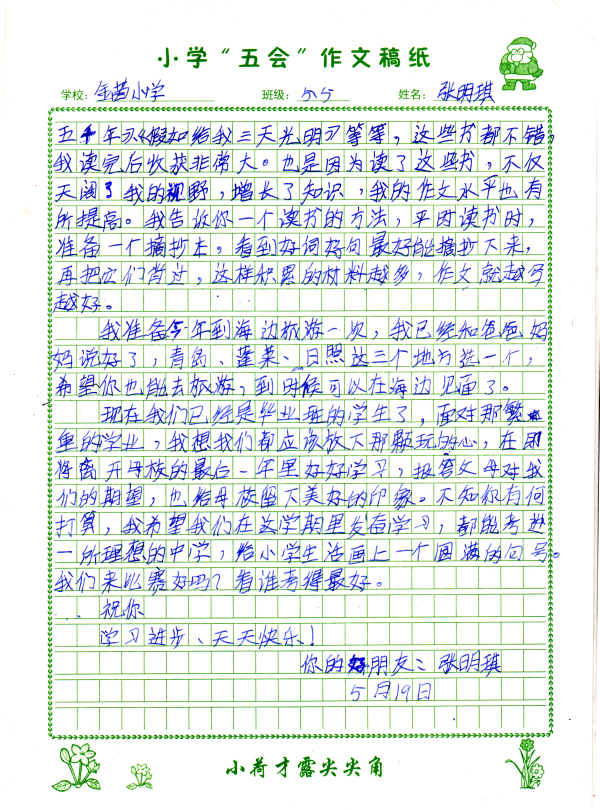 小学“五会”作文稿纸
学校：金茵小学 班级：5.5 姓名：张明琪
五千年》《假如给我三天光明》等等，这些书都不错，
我读完后收获非常大。也是因为读了这些书，不仅
天阔了我的视野，增长了知识，我的作文水平也有
所提高。我告诉你一个读书的方法，平时读书时，
准备一个摘抄本，看到好词好句最好能摘抄下来，
再把它们背过，这样积累的材料越多，作文就越写
越好。
我准备今年到海边旅游一次，我已经和爸爸妈
妈说好了，青岛、蓬莱、日照这三个地方选一个，
希望你也能去旅游，到时候可以在海边见面了。
现在我们已经是毕业班的学生了，面对那繁
重的学业，我想我们都应该放下那颗玩的心，在即
将离开母校的最后一年里好好学习，报答父母对我
们的期望，也给母校留下美好的印象。不知你有何
打算，我希望我们在这学期里发奋学习，都能考进
一所理想的中学，给小学生活画上一个圆满的句号。
我们来比赛好吗？看谁考得最好。
祝你
学习进步、天天快乐！
你的好朋友：张明琪
5月19日
小荷才露尖尖角